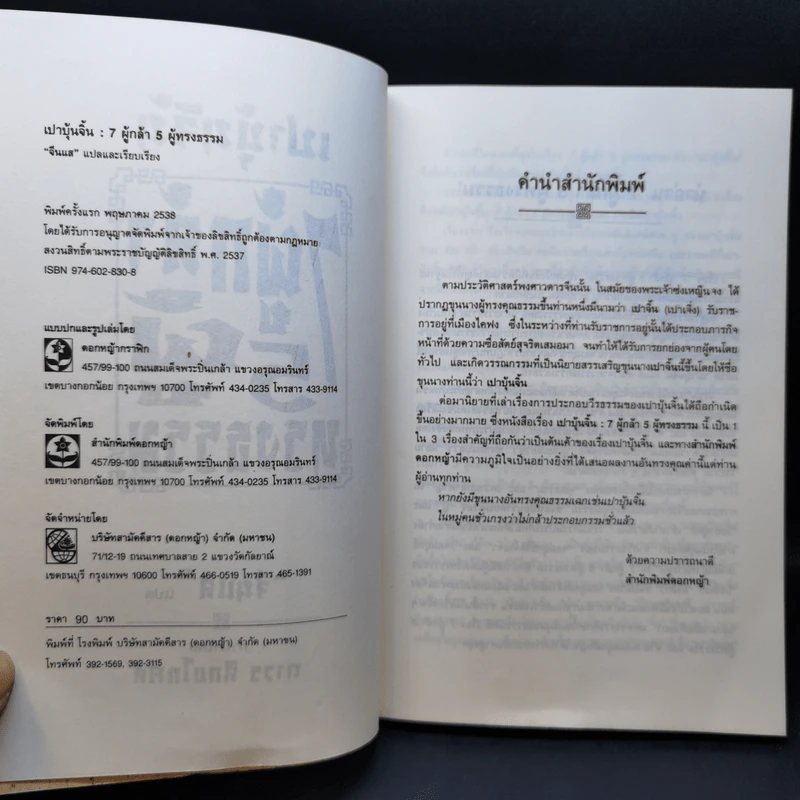 เปาบุ้นจิ้น : 7 ผู้กล้า 5 ผู้ทรงธรรม
"จีนแส" แปลและเรียบเรียง
พิมพ์ครั้งแรก พฤษภาคม 2538
โดยได้รับการอนุญาตจัดพิมพ์จากเจ้าของลิขสิทธิ์ถูกต้องตามกฎหมาย
สงวนสิทธิ์ตามพระราชบัญญัติลิขสิทธิ์ พ.ศ. 2537
ISBN 974-602-830-8
แบบปกและรูปเล่มโดย
ดอกหญ้ากราฟิก
457/99-100 ถนนสมเด็จพระปิ่นเกล้า แขวงอรุณอมรินทร์
เขตบางกอกน้อย กรุงเทพฯ 10700 โทรศัพท์ 434-0235 โทรสาร 433-9114
จัดพิมพ์โดย
สำนักพิมพ์ดอกหญ้า
457/99-100 ถนนสมเด็จพระปิ่นเกล้า แขวงอรุณอมรินทร์
เขตบางกอกน้อย กรุงเทพฯ 10700 โทรศัพท์ 434-0235 โทรสาร 433-9114
จัดจำหน่ายโดย
บริษัทสามัคคีสาร (ดอกหญ้า) จำกัด (มหาชน)
71/12-19 ถนนเทศบาลสาย 2 แขวงวัดกัลยาณ์
เขตธนบุรี กรุงเทพฯ 10600 โทรศัพท์ 466-0519 โทรสาร 465-1391
ราคา 90 บาท
พิมพ์ที่ โรงพิมพ์ บริษัทสามัคคีสาร (ดอกหญ้า) จำกัด (มหาชน)
โทรศัพท์ 392-1569, 392-3115
คำนำสำนักพิมพ์
ตามประวัติศาสตร์พงศาวดารจีนนั้น ในสมัยของพระเจ้าซ่งเหญินจง ได้
ปรากฏขุนนางผู้ทรงคุณธรรมขึ้นท่านหนึ่งมีนามว่า เปาจิ้น (เปาเจิ่ง) รับราช-
การอยู่ที่เมืองไคฟง ซึ่งในระหว่างที่ท่านรับราชการอยู่นั้นได้ประกอบภารกิจ
หน้าที่ด้วยความซื่อสัตย์สุจริตเสมอมา จนทำให้ได้รับการยกย่องจากผู้คนโดย
ทั่วไป และเกิดวรรณกรรมที่เป็นนิยายสรรเสริญขุนนางเปาจิ้นนี้ขึ้นโดยให้ชื่อ
ขุนนางท่านนี้ว่า เปาบุ้นจิ้น
ต่อมานิยายที่เล่าเรื่องการประกอบวีรธรรมของเปาบุ้นจิ้นได้ถือกำเนิด
ขึ้นอย่างมากมาย ซึ่งหนังสือเรื่อง เปาบุ้นจิ้น : 7 ผู้กล้า 5 ผู้ทรงธรรม นี้ เป็น 1
ใน 3 เรื่องสำคัญที่ถือกันว่าเป็นต้นเค้าของเรื่องเปาบุ้นจิ้น และทางสำนักพิมพ์
ดอกหญ้ามีความภูมิใจเป็นอย่างยิ่งที่ได้เสนอผลงานอันทรงคุณค่านี้แด่ท่าน
ผู้อ่านทุกท่าน
หากยังมีขุนนางอันทรงคุณธรรมเฉกเช่นเปาบุ้นจิ้น
ในหมู่คนชั่วเกรงว่าไม่กล้าประกอบกรรมชั่วแล้ว
ด้วยความปรารถนาดี
สำนักพิมพ์ดอกหญ้า